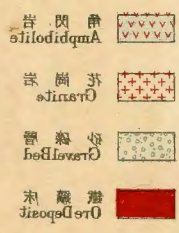 角閃岩
Amphibolite
花崗岩
Granite
砂礫層
Gravel Bed
鐵鑛床
Ore Deposit